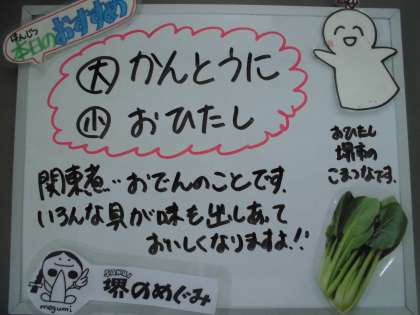 ほんじつ
本日のおすすめ
大 かんとうに
小 おひたし
おひたし
堺市の
こまつなです。
関東煮…おでんのことです。
いろんな具が味を出しあって
おいしくなりますよ!!
SAKAI
堺のめぐみ
megumi